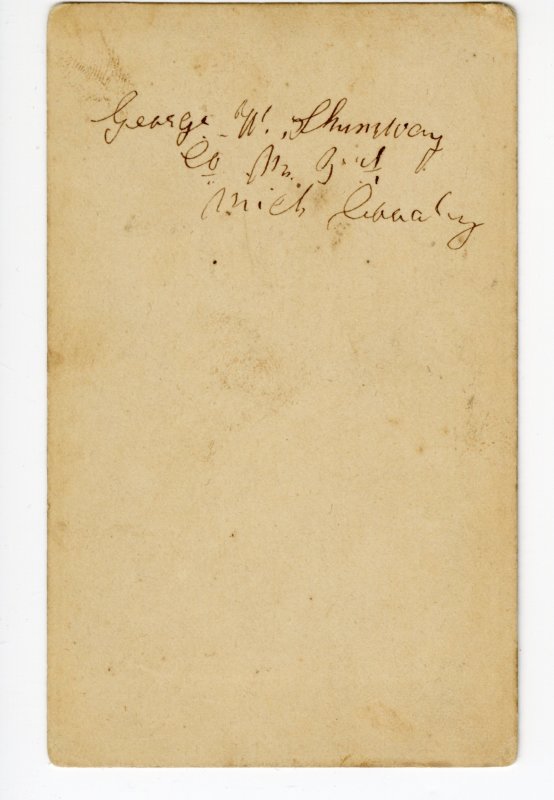 George W. Shumway
Co M.
Mich Cavalry